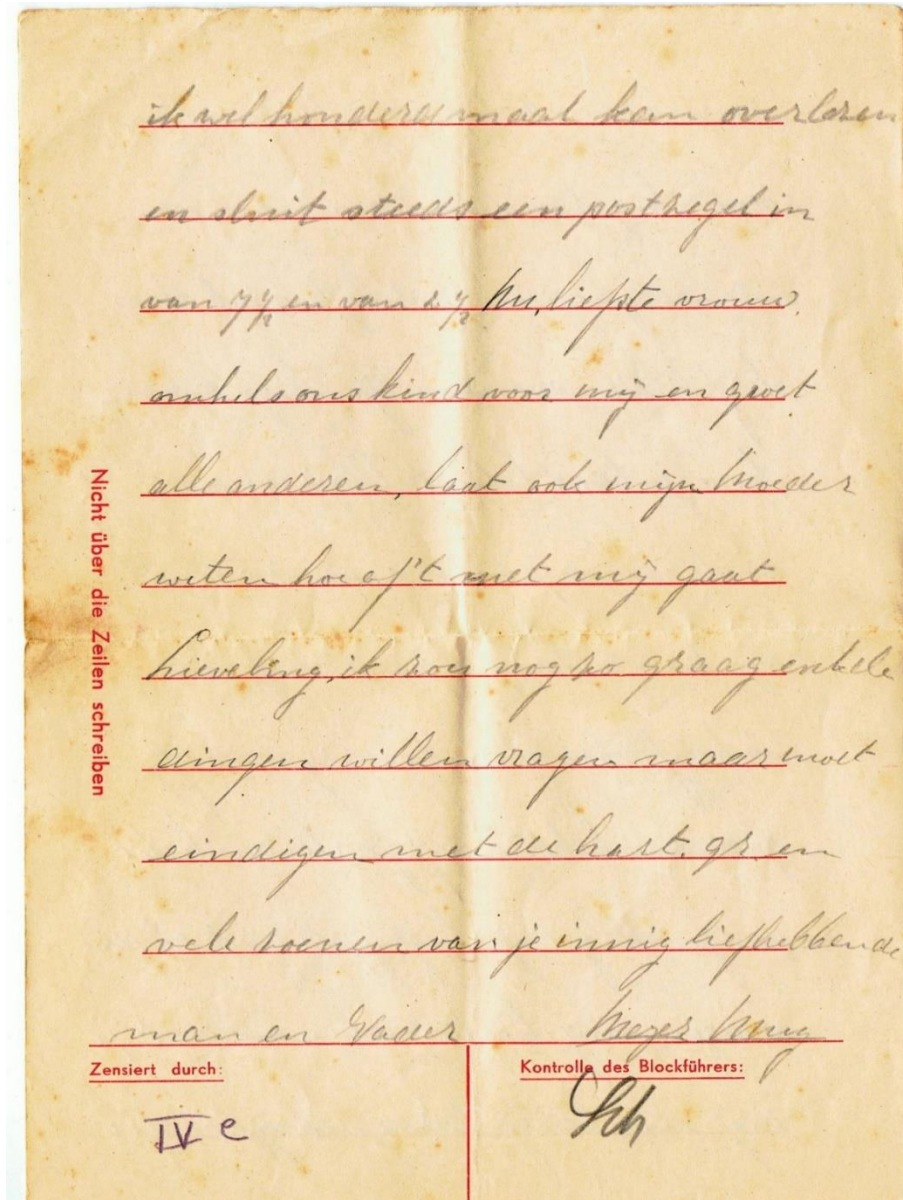 ik wel honderd maal kan overlezen
en sluit steeds een postzegel in
van 7½ en van 2½ Nu, liefste vrouw
omhels ons kind voor mij en groet
alle anderen, laat ook mijn Moeder
weten hoe of't met mij gaat
Lieveling, ik zou nog zo graag enkele
dingen willen vragen maar moet
eindigen met de hart. gr. en
vele zoenen van je innig liefhebbende
man en Vader Meyer
Nicht über die Zeilen schreiben
Zensiert durch:
IV e
Kontrolle des Blockführers:
Sch